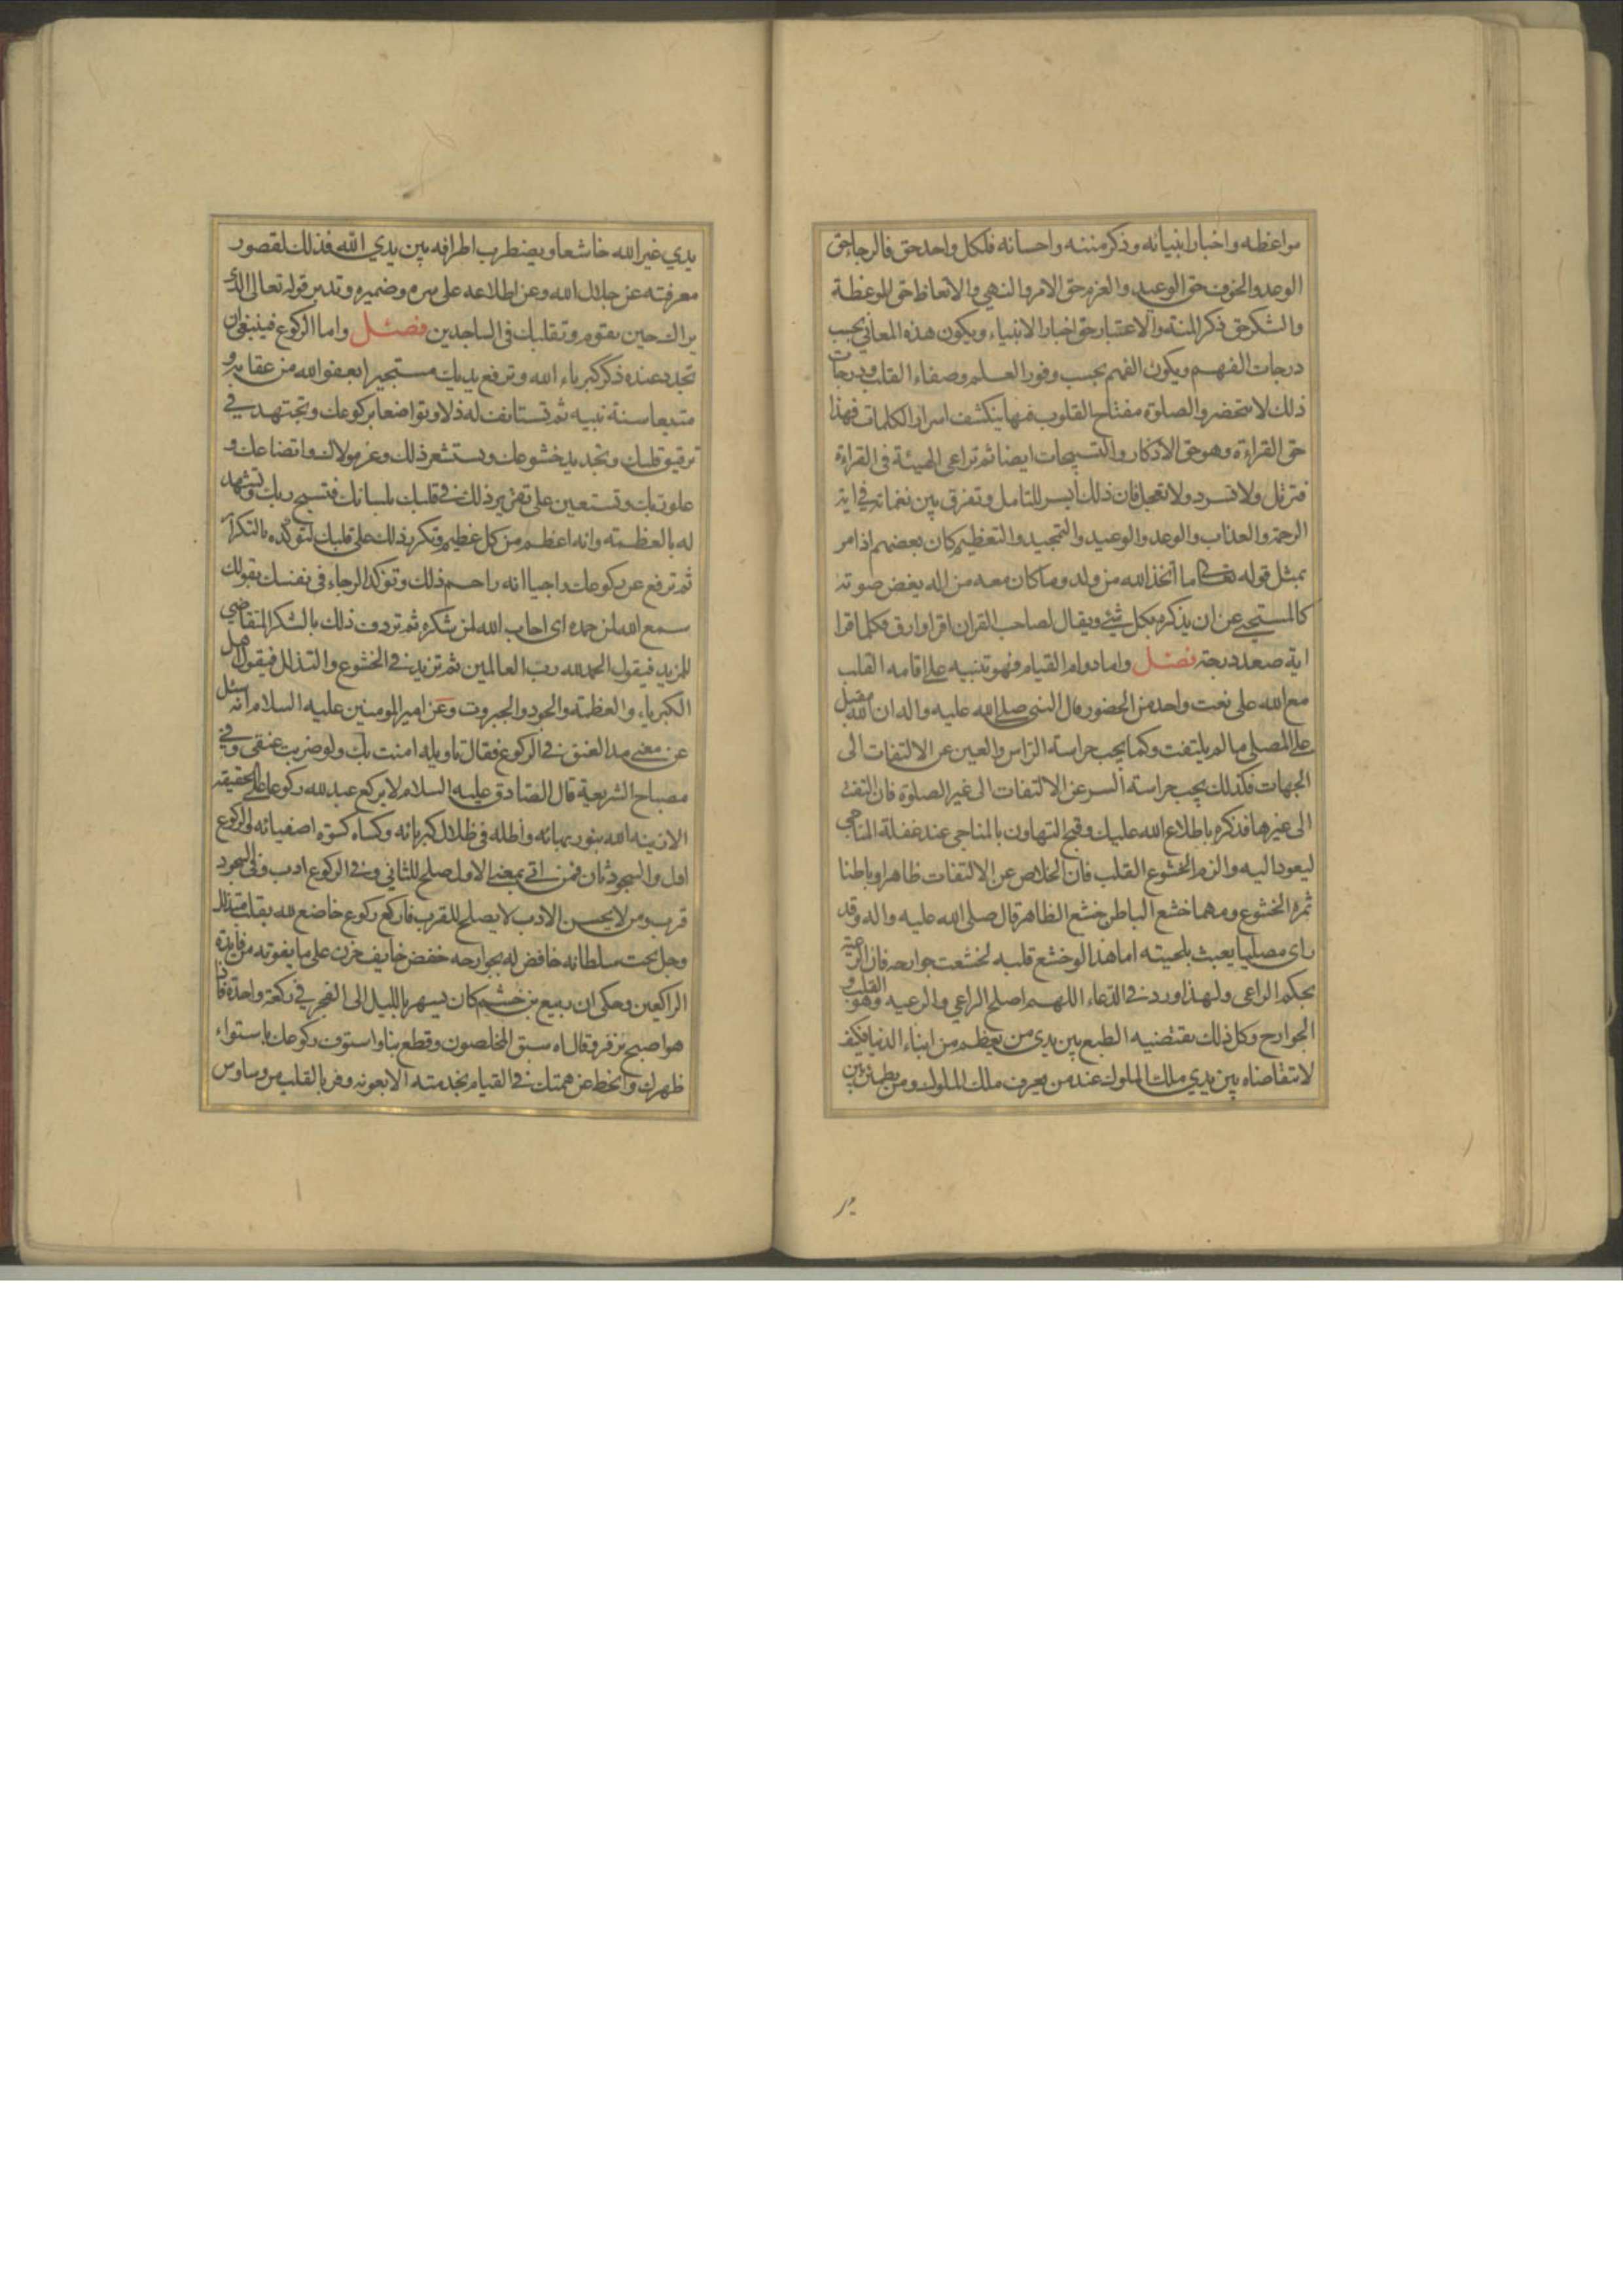 مواعظه واخبار انبيائه وذكر مننه واحسانه فلكل واحد حق فالرجاء حق
الوعد والخوف حق الوعيد والعزم حق الامر والنهي والاتعاظ حق الموعظة
والشكر حق ذكر المنة والاعتبار حق اخبار الانبياء ويكون هذه المعاني بحسب
درجات الفهم ويكون الفهم بحسب وفور العلم وصفاء القلب ودرجات
ذلك لا تنحصر والصلوة مفتاح القلوب فيها ينكشف اسرار الكلمات فهذا
حق القراءة وهو حق الاذكار والتسبيحات ايضا ثم تراعى الهيئة في القراءة
فترتل ولا تسرد ولا تعجل فان ذلك ايسر للتامل وتفرق بين نغماته في اية
الرحمة والعذاب والوعد والوعيد والتمجيد والتعظيم كان بعضهم اذا مر
بمثل قوله تعالى ما اتخذ الله من ولد وما كان معه من اله يغض صوته
كالمستحيي عن ان يذكره بكل شئ ويقال لصاحب القران اقرا وارق فكلما قرا
اية صعد درجة فصل واما دوام القيام فهو تنبيه على اقامه القلب
مع الله على نعت واحد من الحضور قال النبي صلى الله عليه واله ان الله مقبل
على المصلي ما لم يلتفت وكما يجب حراسة الراس والعين عن الالتفات الى
الجهات فكذلك يجب حراسة السر عن الالتفات الى غير الصلوة فان التفت
الى غيرها فذكره باطلاع الله عليك وقبح التهاون بالمناجي عند غفلة المناجي
ليعود اليه والزم الخشوع القلب فان الخلاص عن الالتفات ظاهرا وباطنا
ثمرة الخشوع ومهما خشع الباطن خشع الظاهر قال صلى الله عليه واله وقد
راى مصليا يعبث بلحيته اما هذا لو خشع قلبه لخشعت جوارحه فان الرعية
بحكم الراعى ولهذا ورد في الدعاء اللهم اصلح الراعي والرعيه وهو القلب و
الجوارح وكل ذلك يقتضيه الطبع بين يدى من يعظم من ابناء الدنيا فكيف
لا يتقاضاه بين يدي ملك الملوك عند من يعرف ملك الملوك ومن يطمئن بين
يدي غير الله خاشعا ويضطرب اطرافه بين يدي الله فذلك لقصور
معرفته عن جلال الله وعن اطلاعه على سره وضميره وتدبر قوله تعالى الذي
يراك حين تقوم وتقلبك في الساجدين فصل واما الركوع فينبغي ان
تجدد عنده ذكر كبرياء الله وترفع يديك مستجيرا بعفو الله من عقابه و
متبعا سنة نبيه ثم تستانف له ذلا وتواضعا بركوعك وتجتهد في
ترقيق قلبك وتجديد خشوعك وتستشعر ذلك وعز مولاك واتضاعك و
علو ربك وتستعين على تقرير ذلك في قلبك بلسانك فتسبح ربك وتشهد
له بالعظمة وانه اعظم من كل عظيم وتكرر ذلك على قلبك لتوكده بالتكرار
ثم ترفع عن ركوعك راجيا انه راحم ذلك وتؤكد الرجاء في نفسك بقولك
سمع الله لمن حمده اى اجاب الله لمن شكره ثم تردف ذلك بالشكر المتقاضي
للمزيد فيقول الحمد لله رب العالمين ثم تزيد في الخشوع والتذلل فيقول اهل
الكبرياء والعظمة والجود والجبروت وعن امير المومنين عليه السلام انه سئل
عن معنى مد العنق في الركوع فقال تاويله امنت بك ولو ضربت عنقي وفي
مصباح الشريعة قال الصادق عليه السلام لا يركع عبد لله ركوعا على الحقيقة
الا زينه الله بنور بهائه واظله في ظلال كبريائه وكساه كسوة اصفيائه والركوع
اول والسجود ثان فمن اتى بمعنى الاول صلح للثاني وفي الركوع ادب وفي السجود
قرب ومن لا يحسن الادب لا يصلح للقرب فاركع ركوع خاضع لله بقلب متذلل
وجل تحت سلطانه خافض له بجوارحه خفض خايف حزن على ما يفوته من فايدة
الراكعين وحكى ان ربيع بن خثيم كان يسهر بالليل الى الفجر في ركعة واحدة فاذا
هو اصبح تزفر وقال اه سبق المخلصون وقطع بنا واستوف ركوعك باستواء
ظهرك وانحط عن همتك في القيام بخدمته الا بعونه وفر بالقلب من وساوس